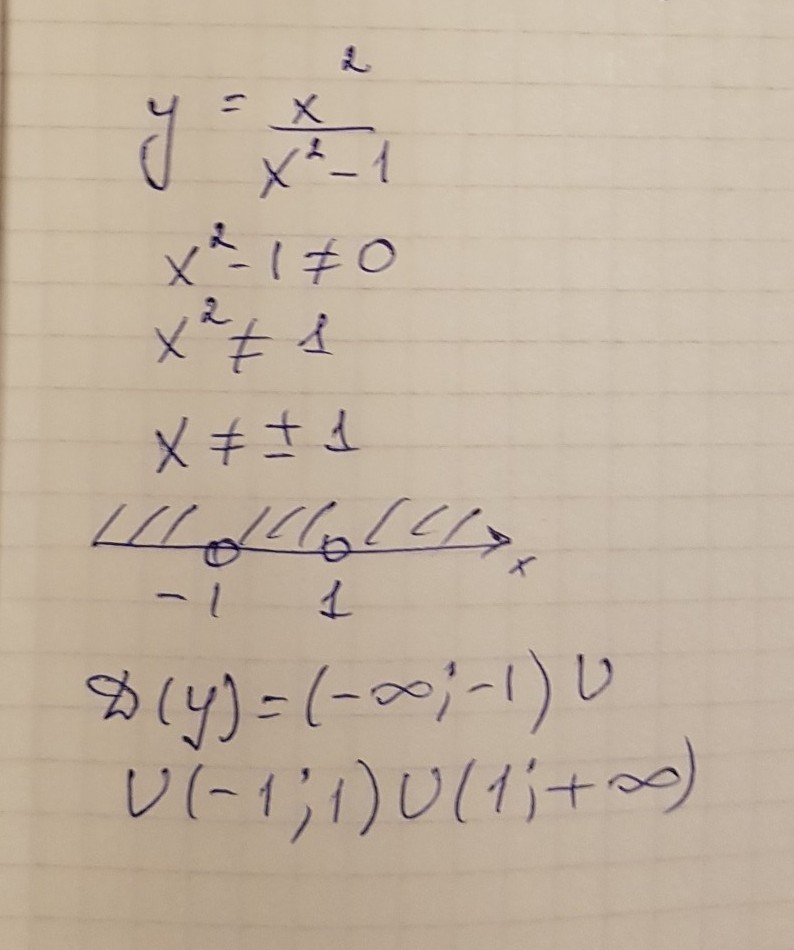 y = x²/(x² - 1)
x² - 1 ≠ 0
x² ≠ 1
x ≠ ± 1
x
-1 1
D(y) = (-∞; -1) ∪
∪(-1; 1) ∪ (1; +∞)